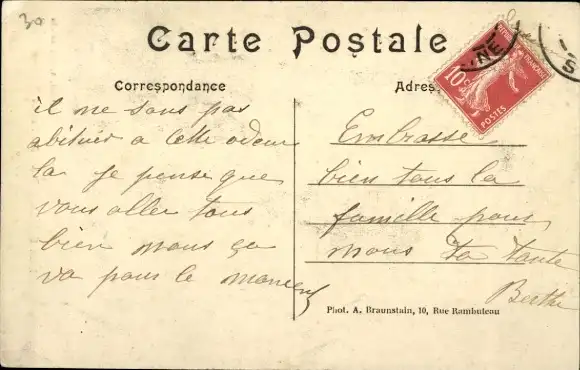 30
Carte Postale
Correspondance
Adres
10c
POSTES
NE
S
il ne sons pas
abituer a cette odeur
la je pense que
vous aller tous
bien nous ça
va pour le moment
Embrasse
bien tous la
famille pour
nous ta tante
Berthe
Phot. A. Braunstain, 10, Rue Rambuteau